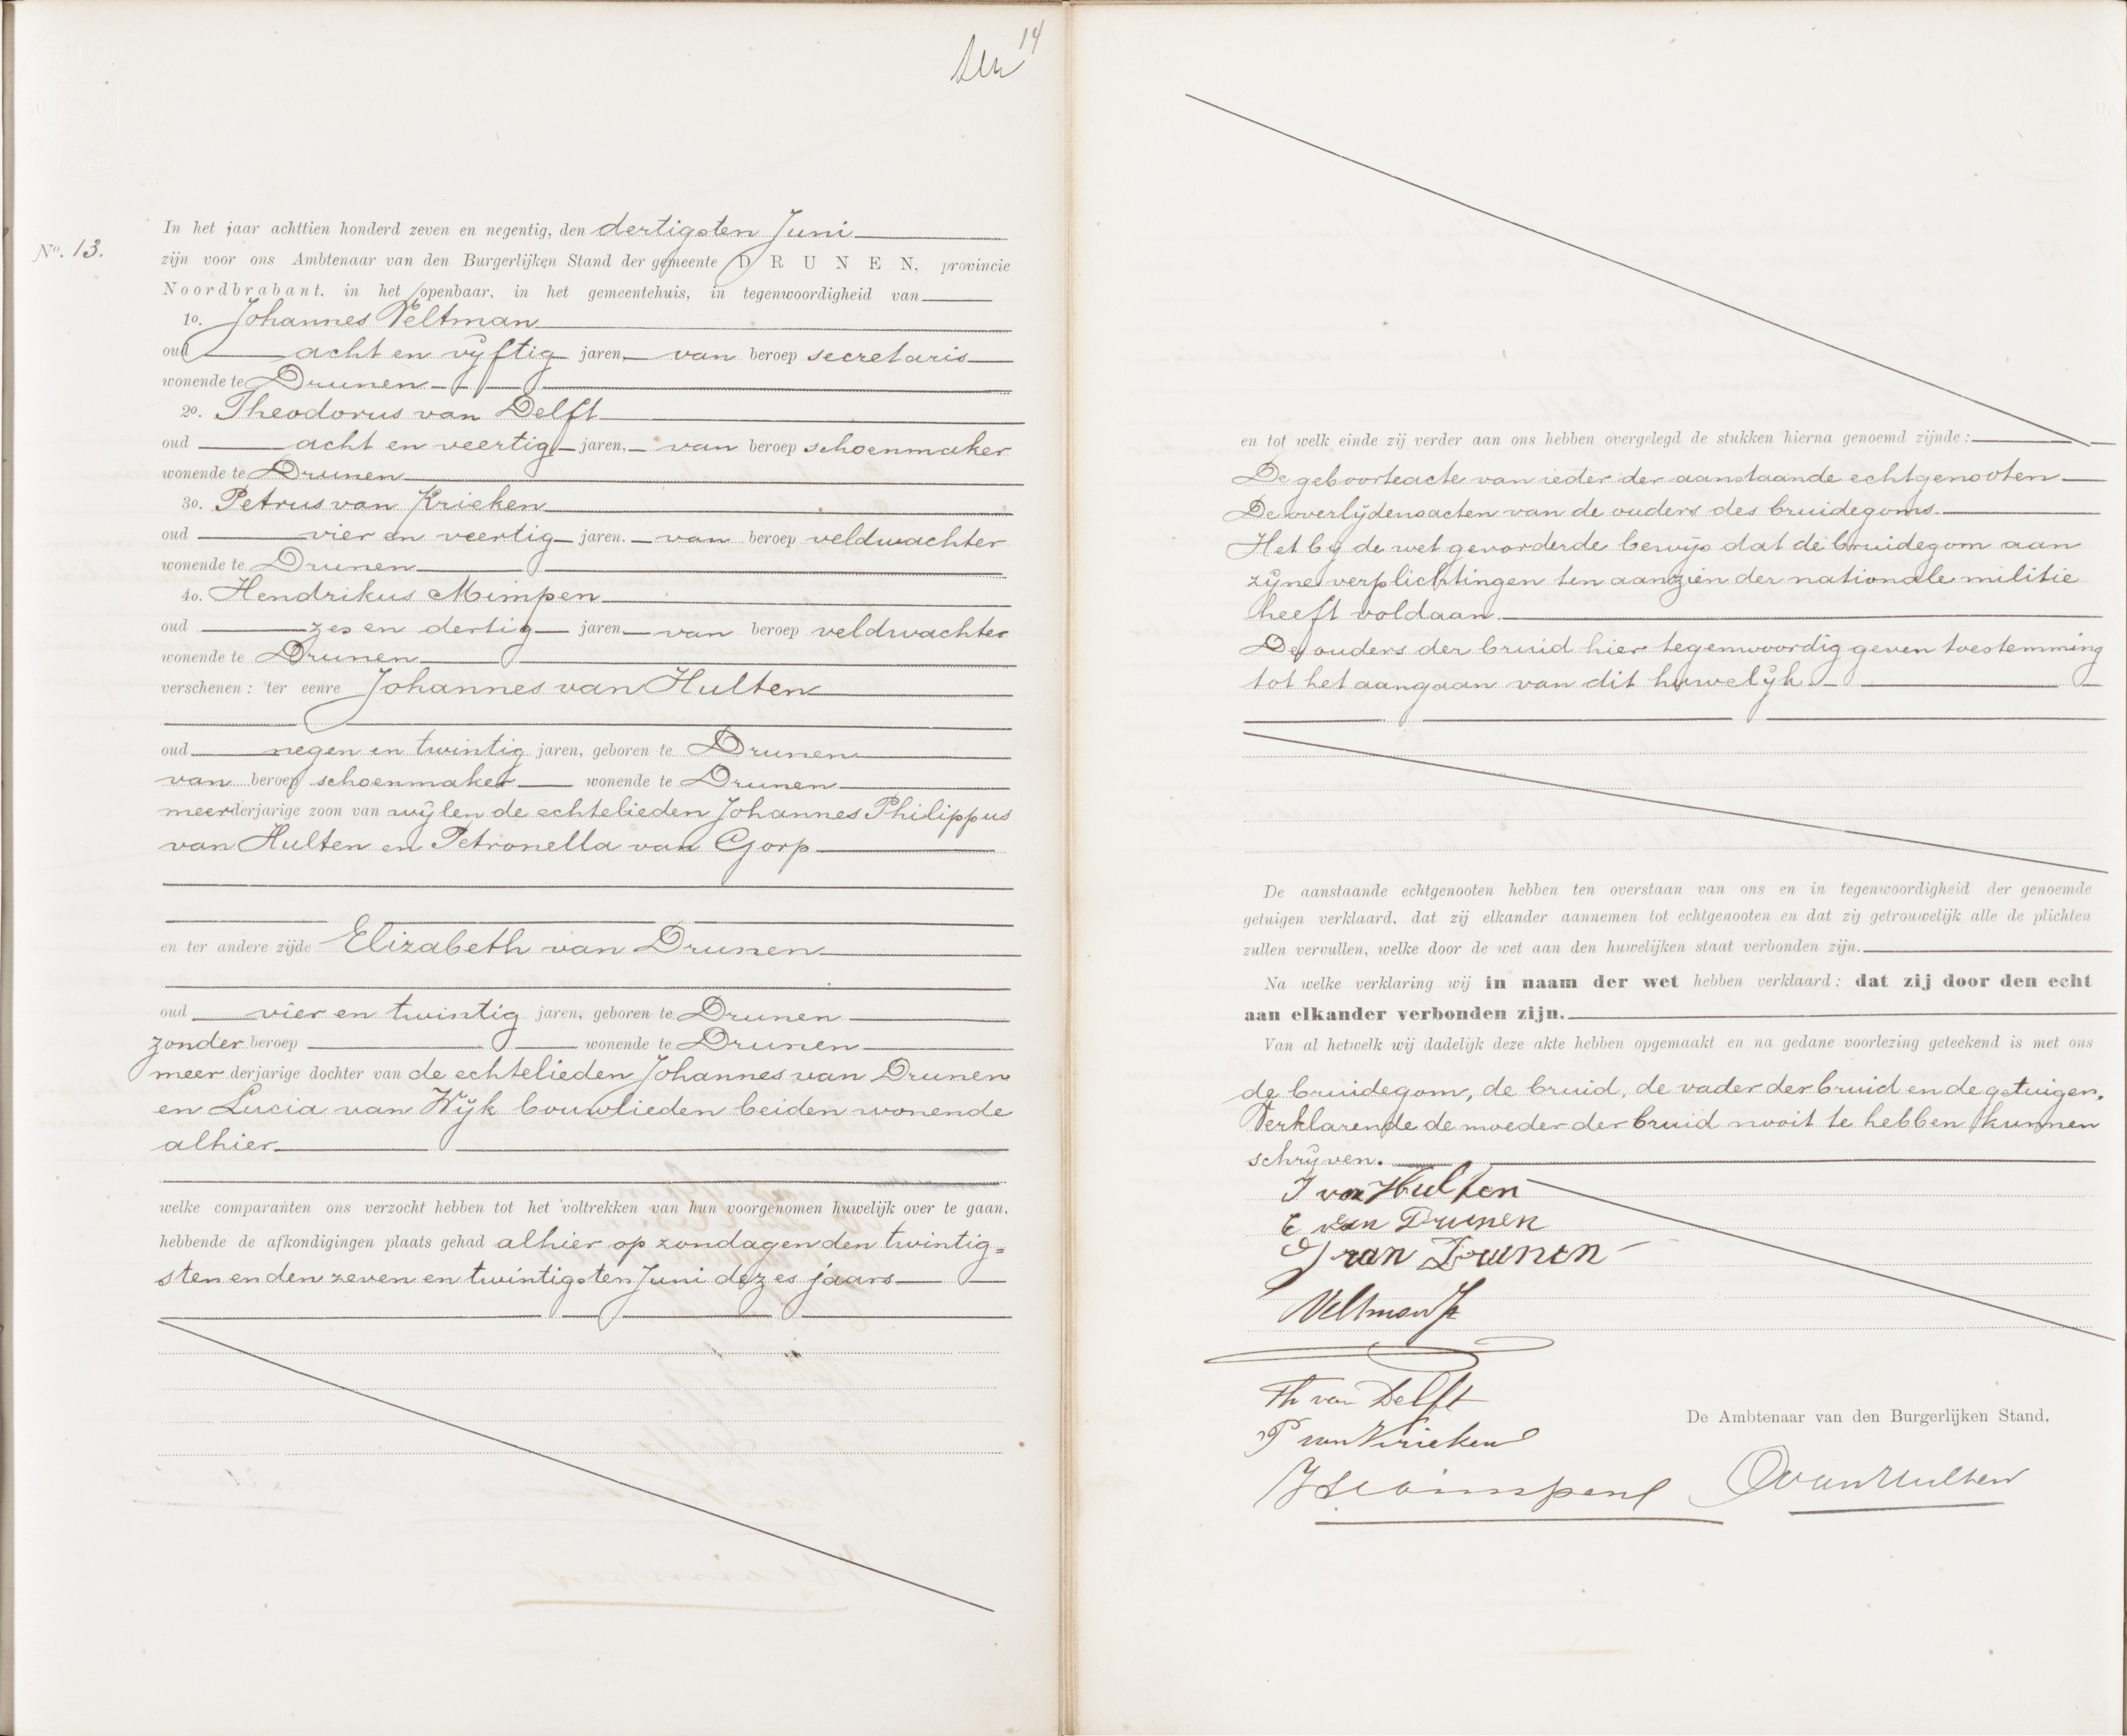 14
No. 13.
In het jaar achttien honderd zeven en negentig, den dertigsten Juni
zijn voor ons Ambtenaar van den Burgerlijken Stand der gemeente DRUNEN, provincie
Noordbrabant, in het openbaar, in het gemeentehuis, in tegenwoordigheid van
1o. Johannes Veltman
oud acht en vyftig jaren, van beroep secretaris
wonende te Drunen
2o. Theodorus van Delft
oud acht en veertig jaren, van beroep schoenmaker
wonende te Drunen
3o. Petrus van Krieken
oud vier en veertig jaren, van beroep veldwachter
wonende te Drunen
4o. Hendrikus Mimpen
oud zes en dertig jaren van beroep veldwachter
wonende te Drunen
verschenen: ter eenre Johannes van Hulten
oud negen en twintig jaren, geboren te Drunen
van beroep schoenmaker wonende te Drunen
meerderjarige zoon van wijlen de echtelieden Johannes Philippus
van Hulten en Petronella van Gorp
en ter andere zijde Elizabeth van Drunen
oud vier en twintig jaren, geboren te Drunen
zonder beroep wonende te Drunen
meerderjarige dochter van de echtelieden Johannes van Drunen
en Lucia van Wijk bouwlieden beiden wonende
alhier
welke comparanten ons verzocht hebben tot het voltrekken van hun voorgenomen huwelijk over te gaan,
hebbende de afkondigingen plaats gehad alhier op zondagen den twintig=
sten en den zeven en twintigsten Juni dezes jaars
en tot welk einde zij verder aan ons hebben overgelegd de stukken hierna genoemd zijnde:
De geboorteacte van ieder der aanstaande echtgenooten
De overlijdensacten van de ouders des bruidegoms.
Het by de wet gevorderde bewijs dat de bruidegom aan
zijne verplichtingen ten aanzien der nationale militie
heeft voldaan.
De ouders der bruid hier tegenwoordig geven toestemming
tot het aangaan van dit huwelijk
De aanstaande echtgenooten hebben ten overstaan van ons en in tegenwoordigheid der genoemde
getuigen verklaard, dat zij elkander aannemen tot echtgenooten en dat zij getrouwelijk alle de plichten
zullen vervullen, welke door de wet aan den huwelijken staat verbonden zijn.
Na welke verklaring wij in naam der wet hebben verklaard: dat zij door den echt
aan elkander verbonden zijn.
Van al hetwelk wij dadelijk deze akte hebben opgemaakt en na gedane voorlezing geteekend is met ons
de bruidegom, de bruid, de vader der bruid en de getuigen.
Verklarende de moeder der bruid nooit te hebben kunnen
schrijven.
J van Hulten
E van Drunen
J van Drunen
Veltman Jz
Th van Delft
P van Krieken
De Ambtenaar van den Burgerlijken Stand,
H Mimpen
van Hulten